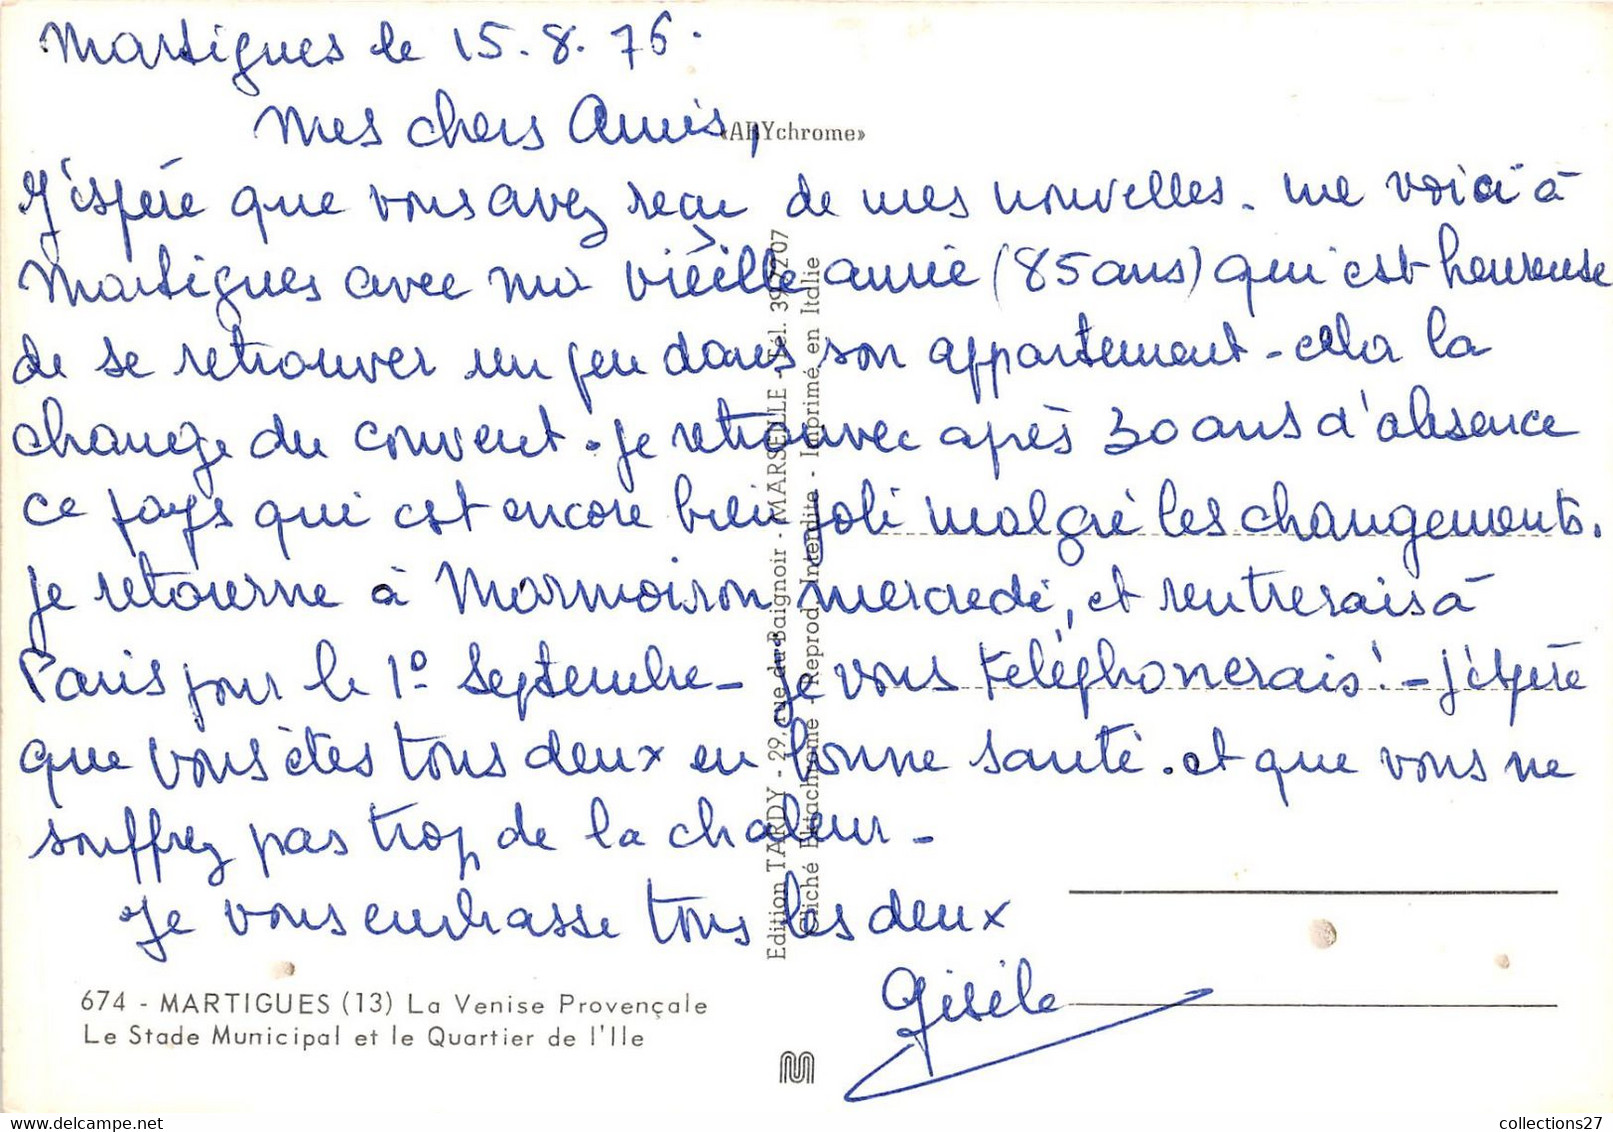 Martigues le 15.8.76.
Mes chers Amis,
«ARYchrome»
J'espère que vous avez reçu de mes nouvelles. me voici à
Martigues avec ma vieille amie (85 ans) qui est heureuse
de se retrouver un peu dans son appartement - cela la
change du couvent. je retrouve après 30 ans d'absence
ce pays qui est encore bien joli malgré les changements.
Je retourne à Mormoiron mercredi, et rentrerais à
Paris pour le 1º Septembre - je vous téléphonerais! - J'espère
que vous êtes tous deux en bonne santé. et que vous ne
souffrez pas trop de la chaleur -
Je vous embrasse tous les deux
Gisèle
Edition TARDY - 29, rue du Baignoir - MARSEILLE - Tél. 39.72.07
Cliché Ektachrome - Reprod. Interdite - Imprimé en Italie
674 - MARTIGUES (13) La Venise Provençale
Le Stade Municipal et le Quartier de l'Ile
collections27